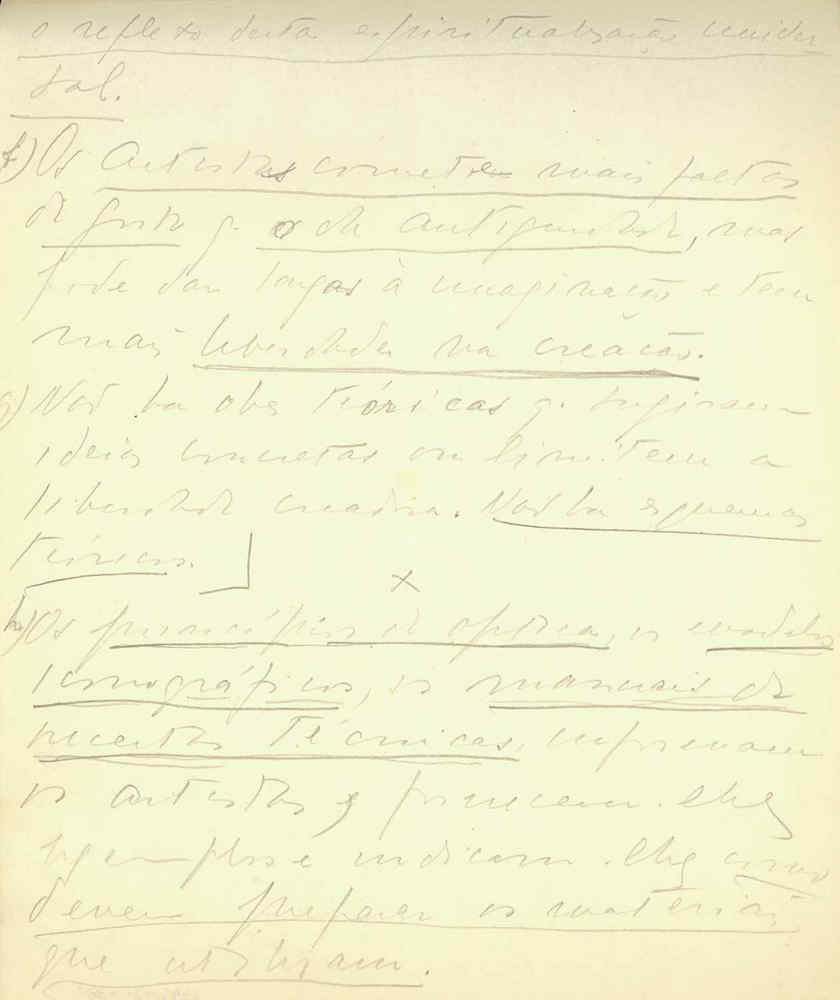 o reflexo desta espiritualização univer
sal.
f) Os artistas cometem mais faltas
de gosto q. os da antiguidade, mas
pode dar largas à imaginação e tem
mais liberdade na creação.
g) Não ha obs teóricas q. sugiram
ideias concretas ou limitem a
liberdade creadora. Não ha esquemas
teóricos.
x
h) Os principios de optica, os modelos
iconográficos, os manuais de
receitas técnicas, informam
os artistas e fornecem-lhes
exemplos e indicam-lhes como
devem preparar os materiais
que utilizam.